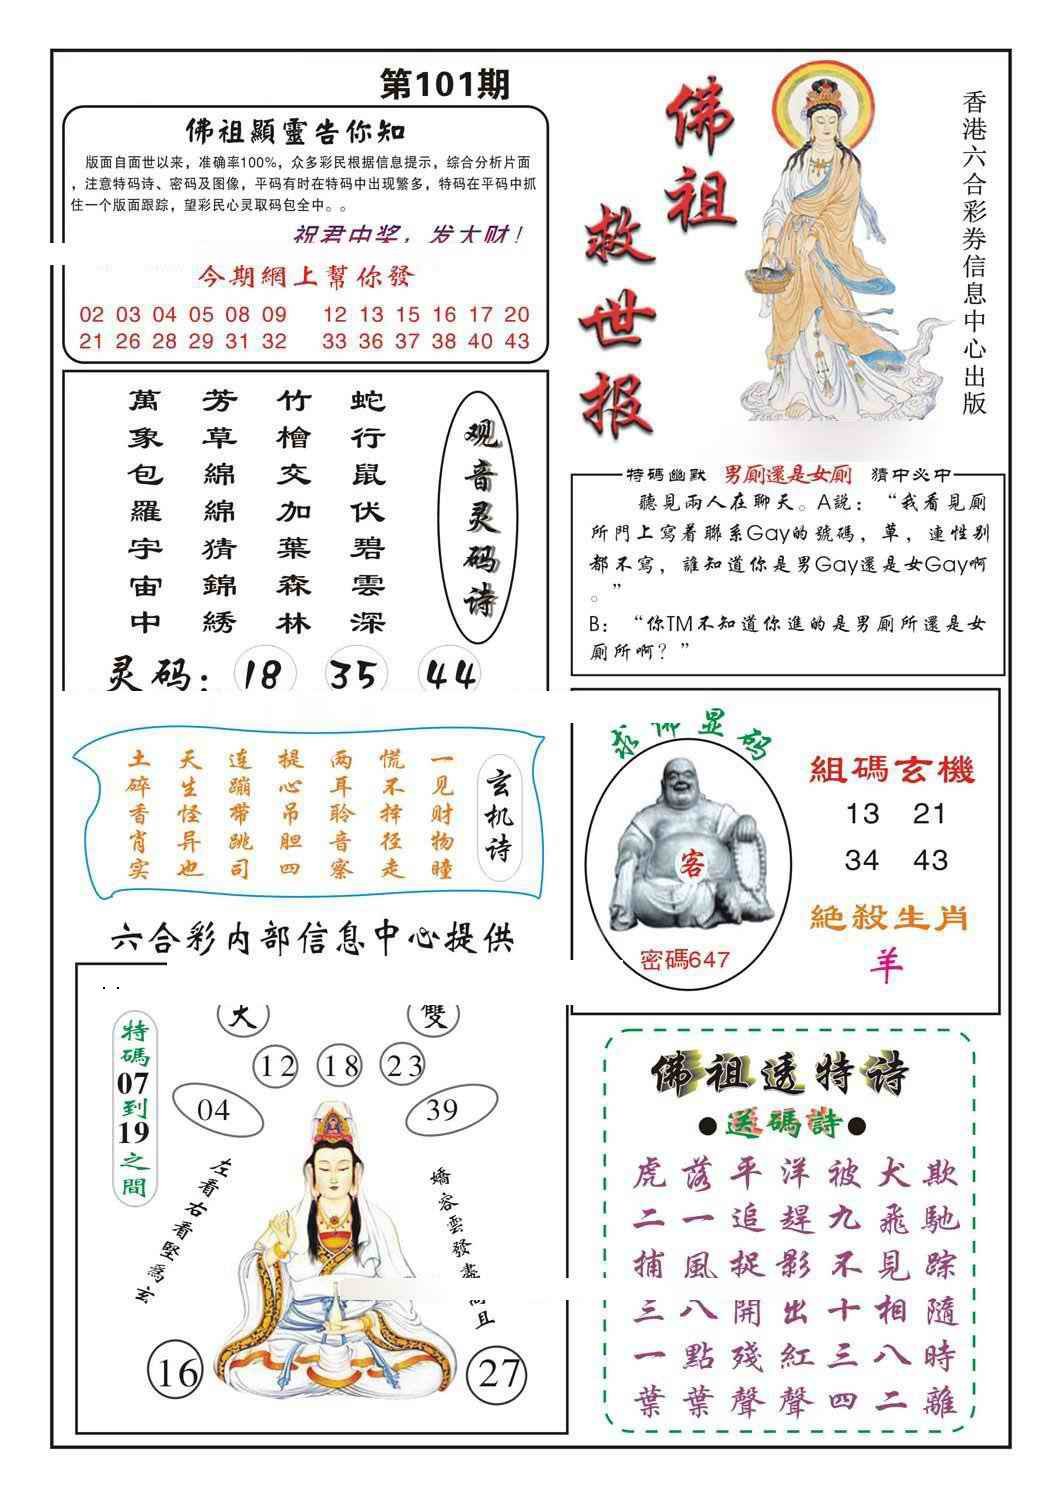 第101期
佛祖顯靈告你知
版面自面世以来，准确率100%，众多彩民根据信息提示，综合分析片面
，注意特码诗、密码及图像，平码有时在特码中出现繁多，特码在平码中抓
住一个版面跟踪，望彩民心灵取码包全中。。
祝君中奖，发大财！
今期網上幫你發
02 03 04 05 08 09 12 13 15 16 17 20
21 26 28 29 31 32 33 36 37 38 40 43
佛祖
救世报
香港六合彩券信息中心出版
观音灵码诗
蛇行鼠伏碧雲深
竹檜交加葉森林
芳草綿綿猜錦綉
萬象包羅宇宙中
灵码：18 35 44
特碼幽默 男厠還是女厠 猜中必中
聽見兩人在聊天。A説：“我看見厠
所門上寫着聯系Gay的號碼，草，連性别
都不寫，誰知道你是男Gay還是女Gay啊
。”
B：“你TM不知道你進的是男厠所還是女
厠所啊？”
玄机诗
一见财物瞳
慌不择径走
两耳聆音察
提心吊胆四
连蹦带跳司
天生怪异也
土碎香肖实
求佛显码
客
密碼647
組碼玄機
13 21
34 43
絕殺生肖
羊
六合彩内部信息中心提供
特碼07到19之間
大 雙
12 18 23
04 39
左看右看堅爲玄
嬌容雲發盡
且
16 27
佛祖透特诗
●送碼詩●
虎落平洋被犬欺
二一追趕九飛馳
捕風捉影不見踪
三八開出十相隨
一點殘紅三八時
葉葉聲聲四二離